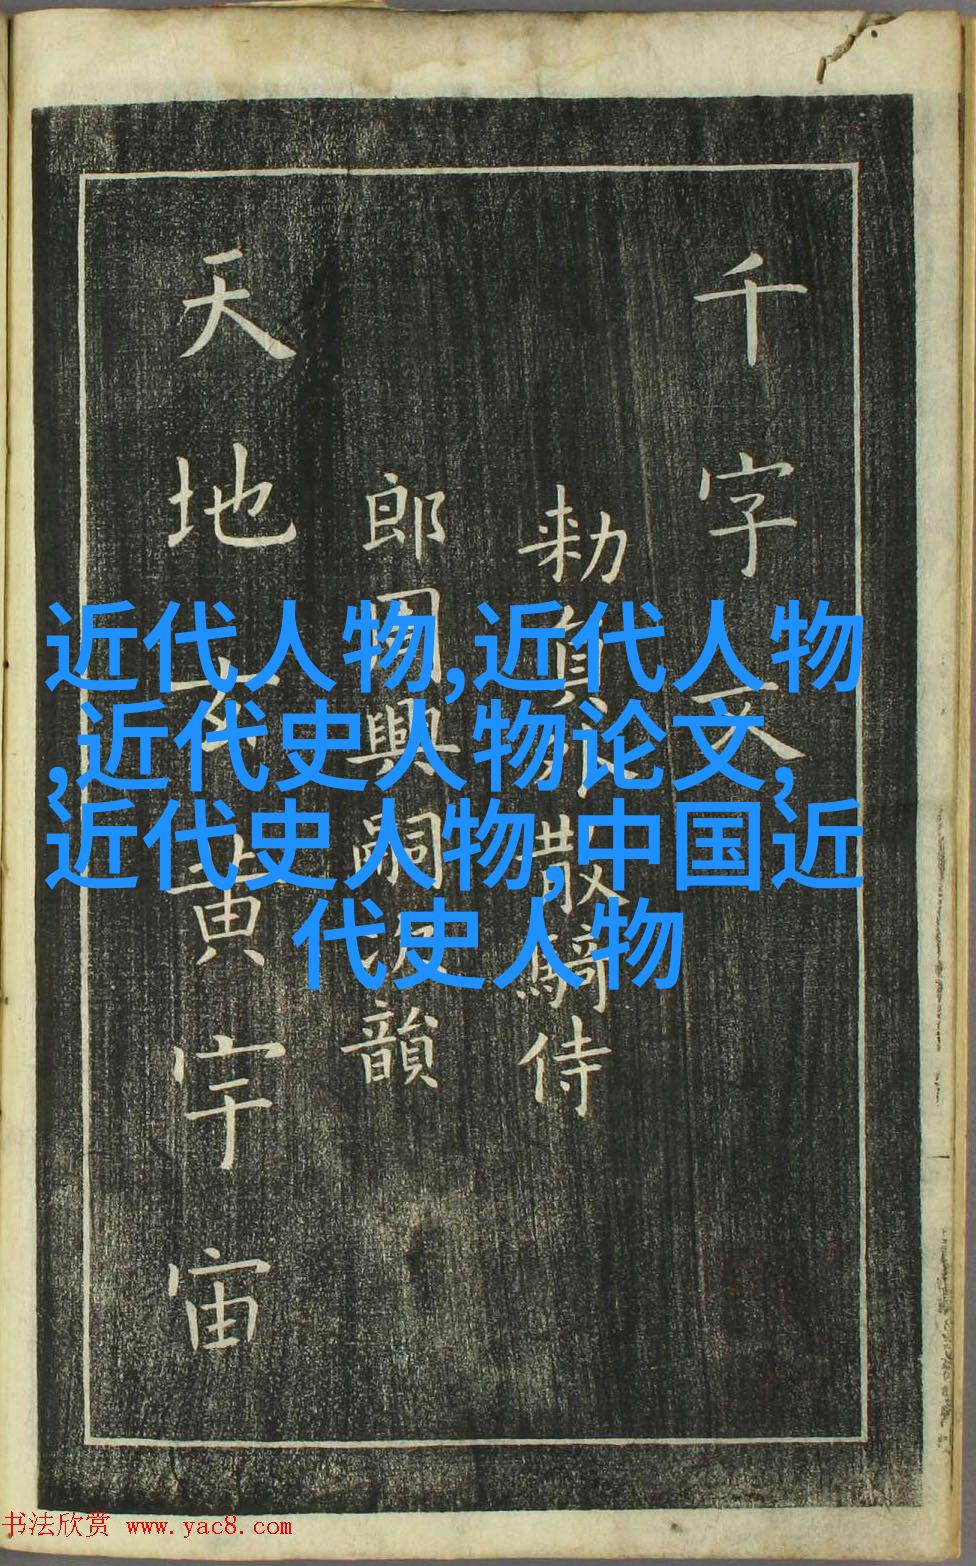 千字文
勑員外散騎侍
郎周興嗣次韻
天地玄黃宇宙
近代人物,近代人物
,近代史人物论文,
近代史人物,中国近
代史人物
书法欣赏 www.yac8.com